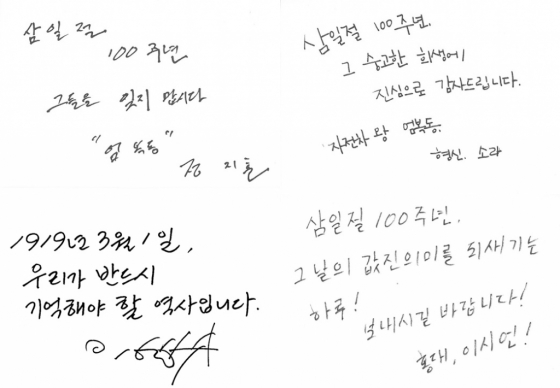 삼일절
100 주년
그들을 잊지 맙시다
"엄복동"
정지훈
삼일절 100주년.
그 숭고한 희생에
진심으로 감사드립니다.
자전차왕 엄복동.
형신. 소라
1919년 3월 1일,
우리가 반드시
기억해야 할 역사입니다.
삼일절 100주년.
그 날의 값진의미를 되새기는
하루!
보내시길 바랍니다!
홍대, 이시언!